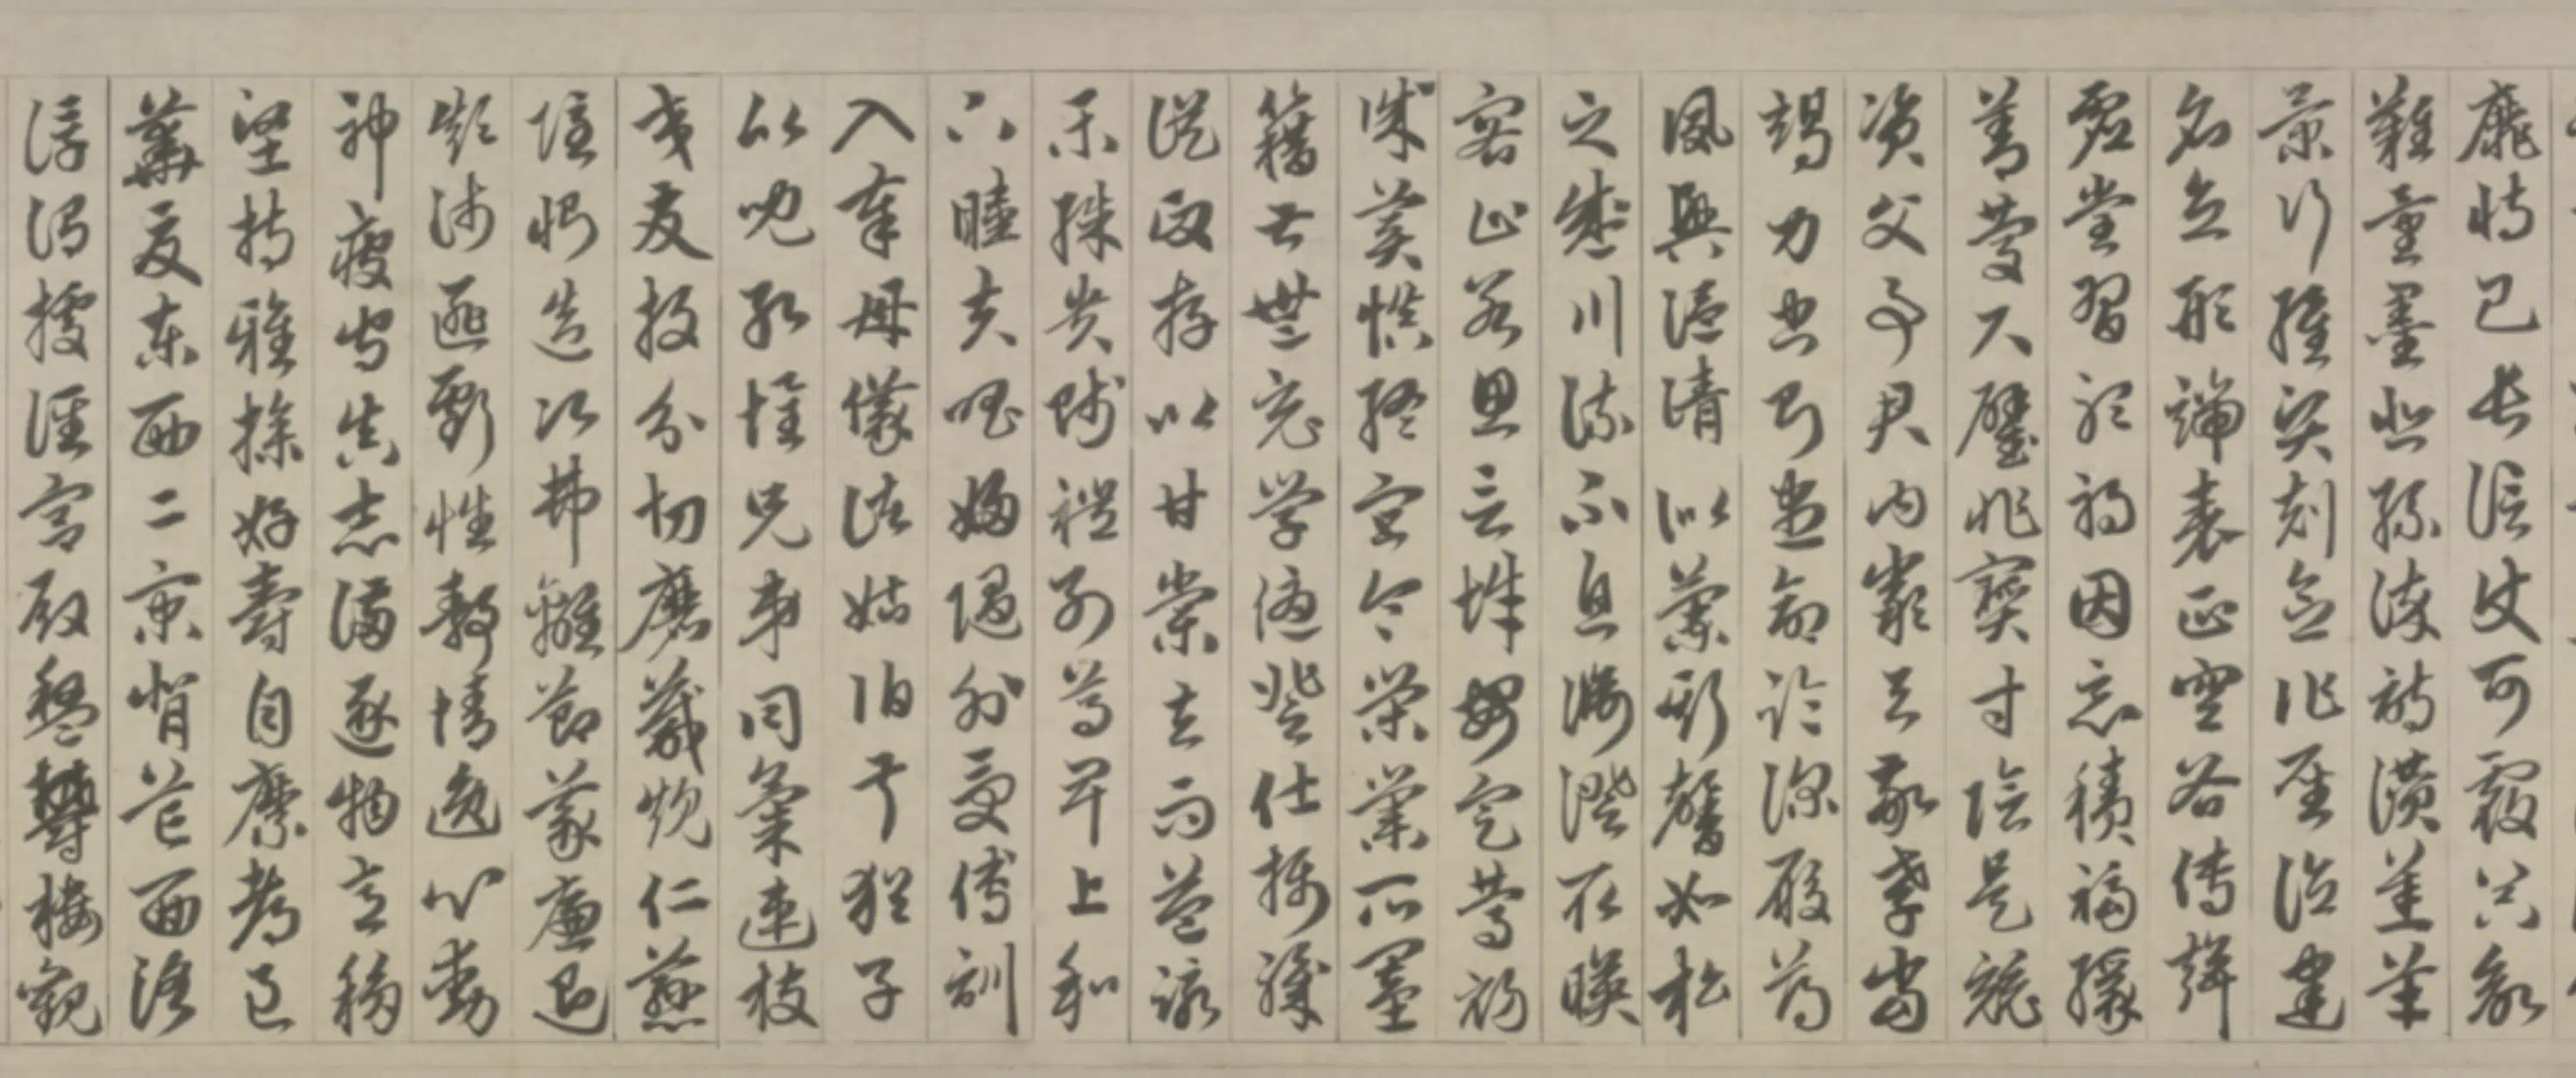 靡恃己長信使可覆器欲
難量墨悲絲染詩讚羔羊
景行維賢剋念作聖德建
名立形端表正空谷傳聲
虛堂習聽禍因惡積福緣
善慶尺璧非寶寸陰是競
資父事君曰嚴與敬孝當
竭力忠則盡命臨深履薄
夙興溫清似蘭斯馨如松
之盛川流不息淵澄取暎
容止若思言辭安定篤初
誠美慎終宜令榮業所基
籍甚無竟學優登仕攝職
從政存以甘棠去而益詠
樂殊貴賤禮別尊卑上和
下睦夫唱婦隨外受傅訓
入奉母儀諸姑伯叔猶子
比兒孔懷兄弟同氣連枝
交友投分切磨箴規仁慈
隱惻造次弗離節義廉退
顛沛匪虧性靜情逸心動
神疲守真志滿逐物意移
堅持雅操好爵自縻都邑
華夏東西二京背邙面洛
浮渭據涇宮殿盤鬱樓觀